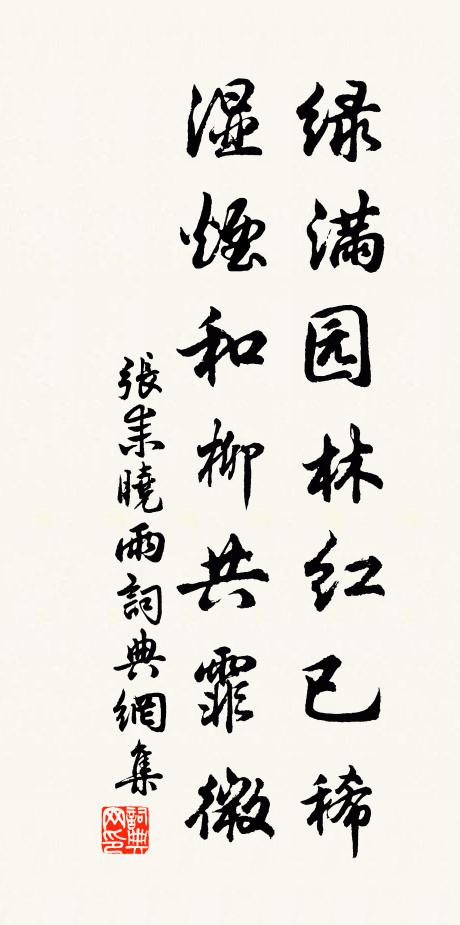 绿满园林红已稀
湿烟和柳共霏微
張耒曉雨詞典網集
詞典网印